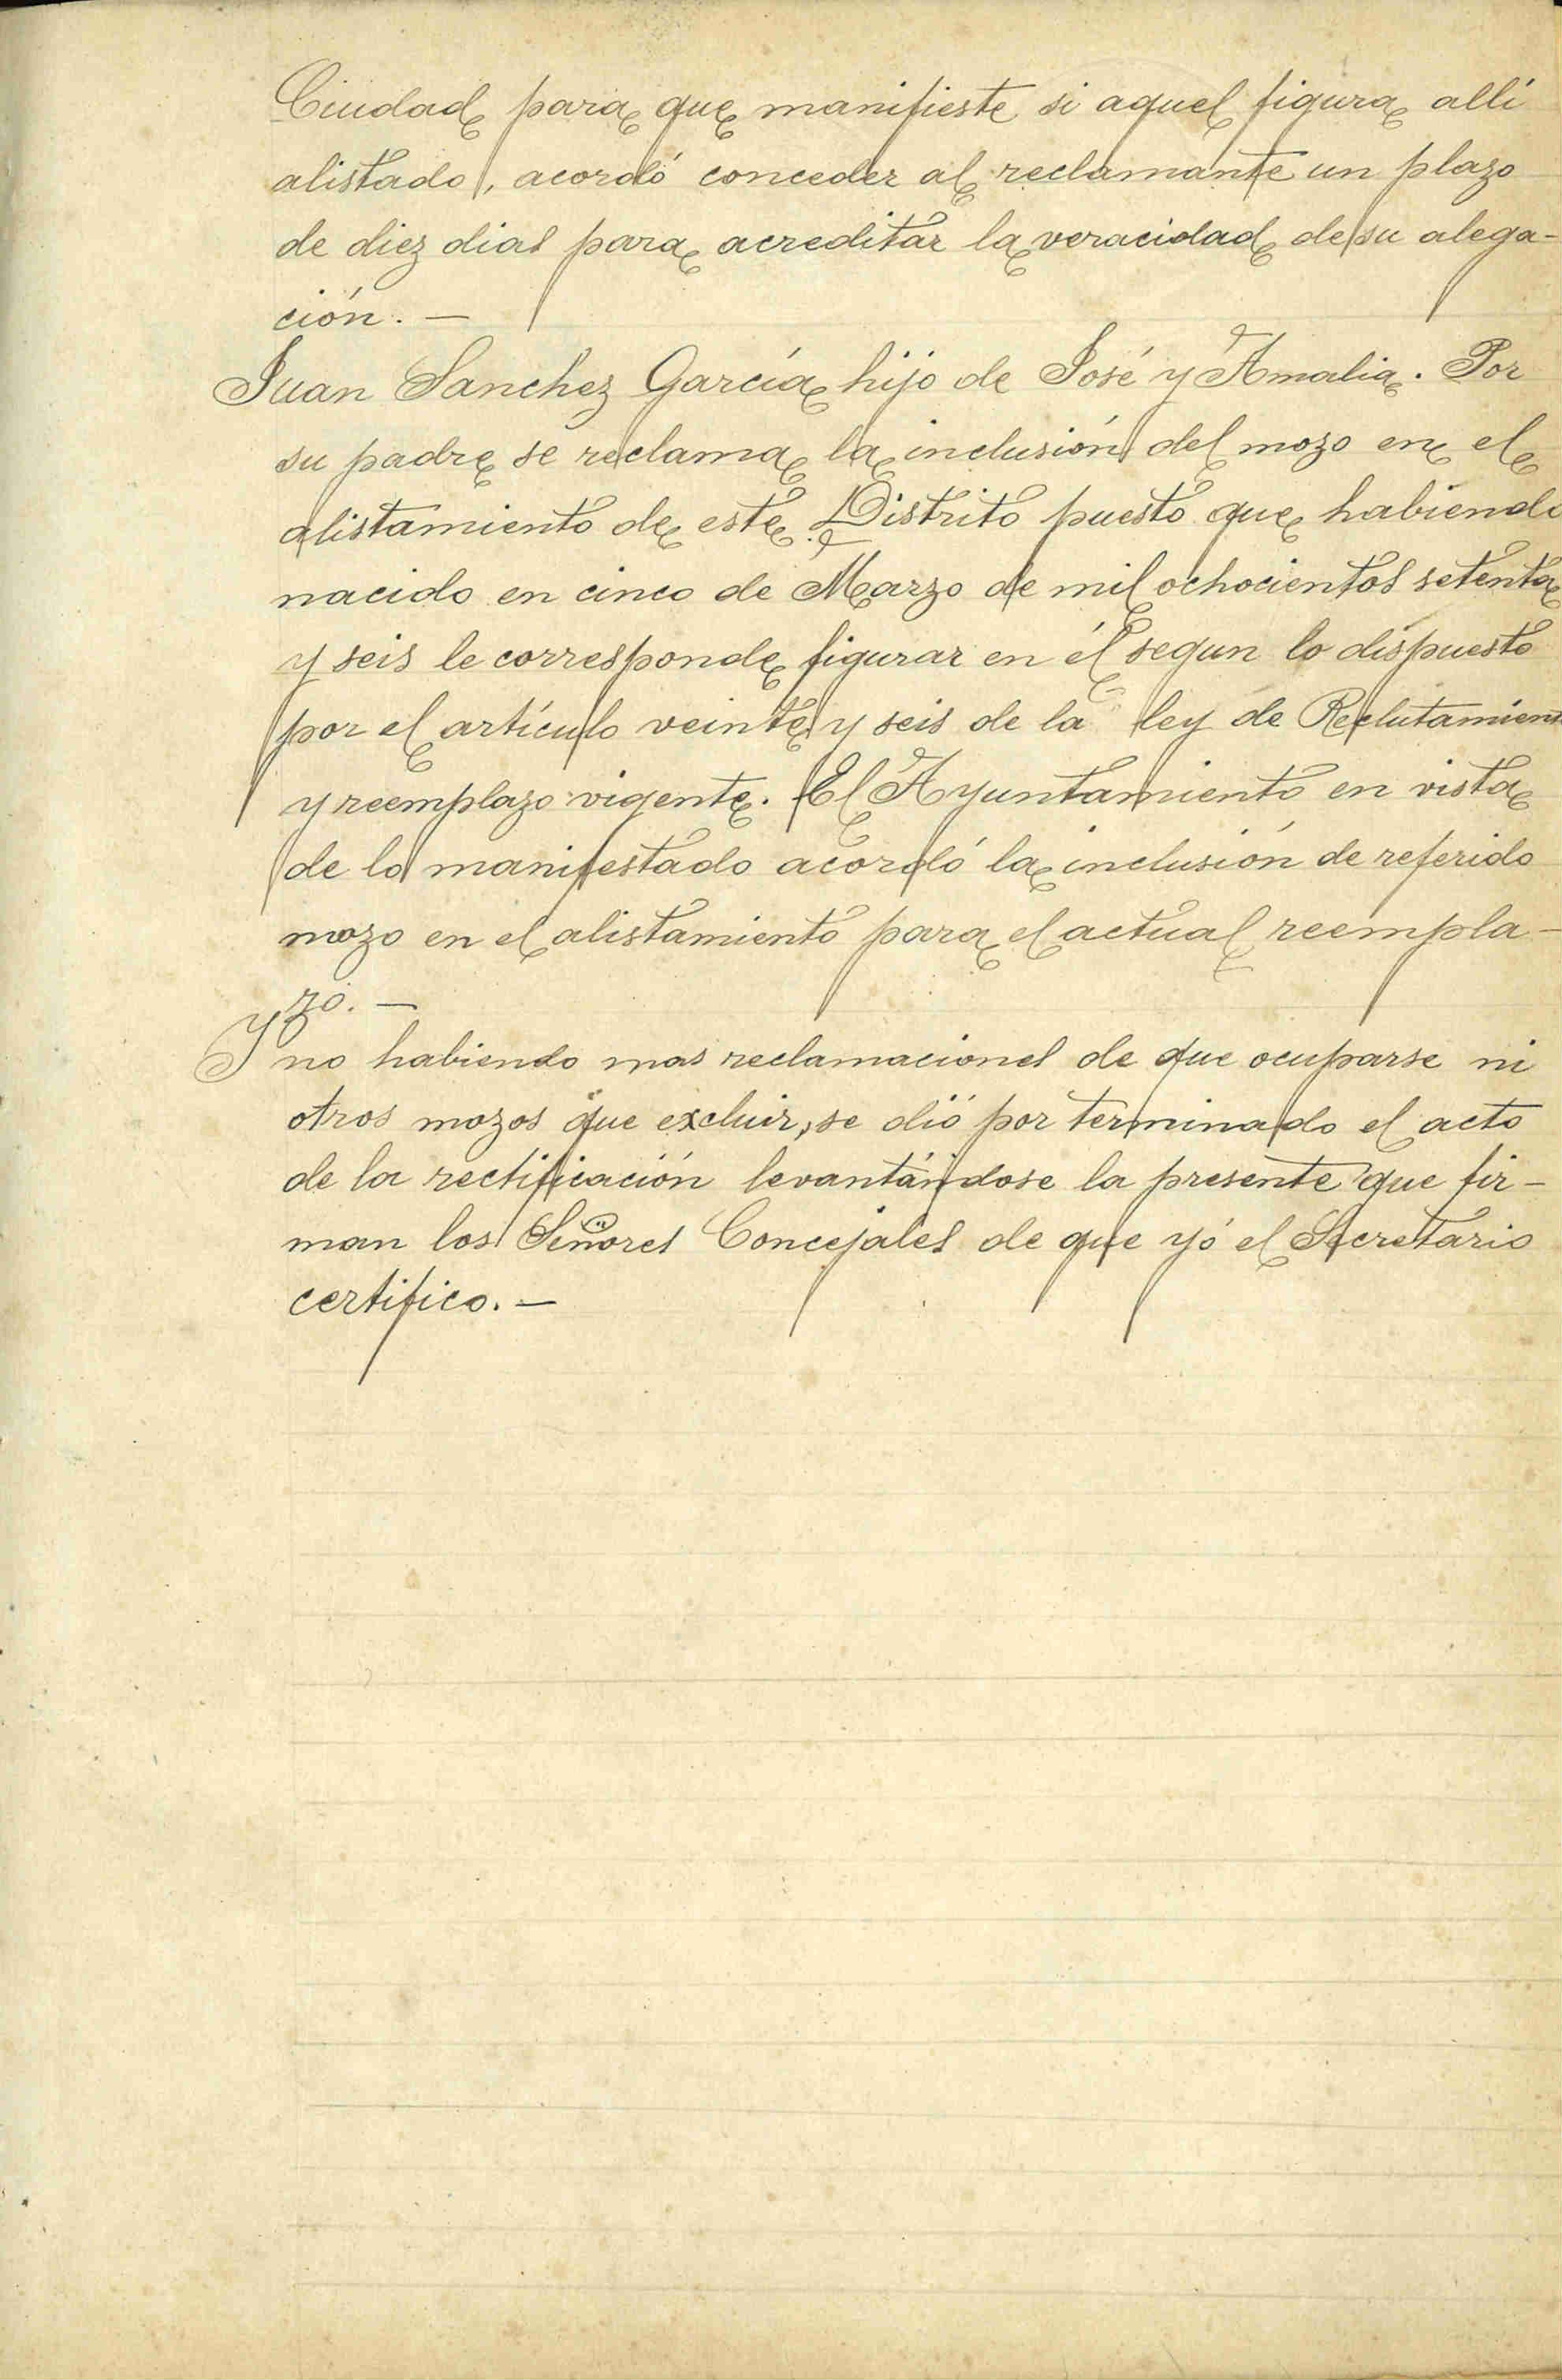 Ciudad para que manifieste si aquel figura alli
alistado, acordó conceder al reclamante un plazo
de diez dias para acreditar la veracidad de su alega-
ción. —
Juan Sanchez García hijo de José y Amalia. Por
su padre se reclama la inclusión del mozo en el
alistamiento de este Distrito puesto que habiendo
nacido en cinco de Marzo de mil ochocientos setenta
y seis le corresponde figurar en él segun lo dispuesto
por el artículo veinte y seis de la ley de Reclutamient
y reemplazo vigente. El Ayuntamiento en vista
de lo manifestado acordó la inclusión de referido
mozo en el alistamiento para el actual reempla-
zo. —
Y no habiendo mas reclamaciones de que ocuparse ni
otros mozos que excluir, se dió por terminado el acto
de la rectificación levantándose la presente que fir-
man los Señores Concejales de que yó el Secretario
certifico. —